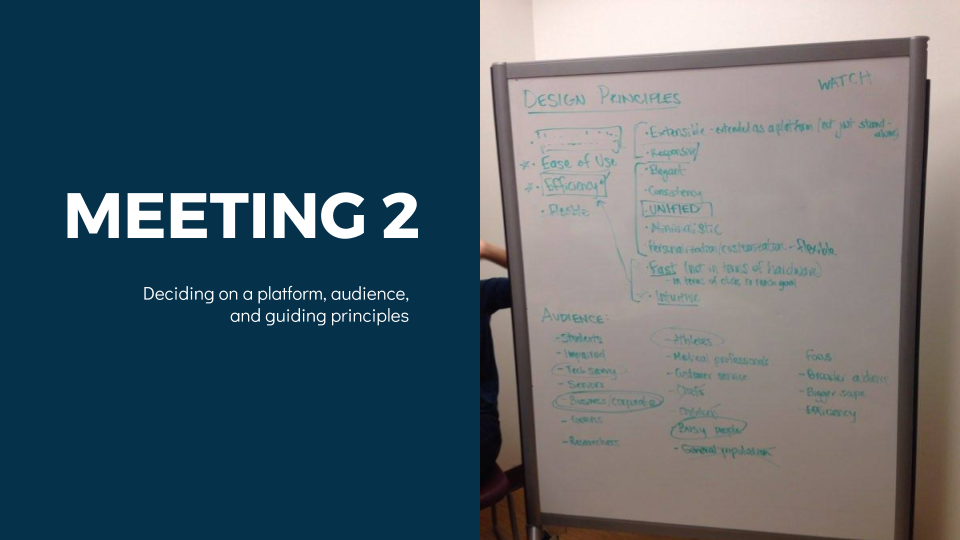 MEETING 2
Deciding on a platform, audience,
and guiding principles
WATCH
DESIGN PRINCIPLES
* · Ease of Use
* · Efficiency
· Flexible
· Extensible - extended as a platform (not just stand-alone)
· Responsive
· Elegant
· Consistency
· UNIFIED
· Minimalistic
· Personalization/customization - flexible
· Fast (not in terms of hardware)
- in terms of clicks to reach goal
· Intuitive
AUDIENCE:
- Students
- Impaired
- Tech savvy
- Seniors
- Business/corporate
- Gamers
- Researchers
- Athletes
- Medical professionals
- Customer service
- Chefs
- Children
- Busy people
- General population
Focus
- Broader audience
- Bigger scope
- Efficiency